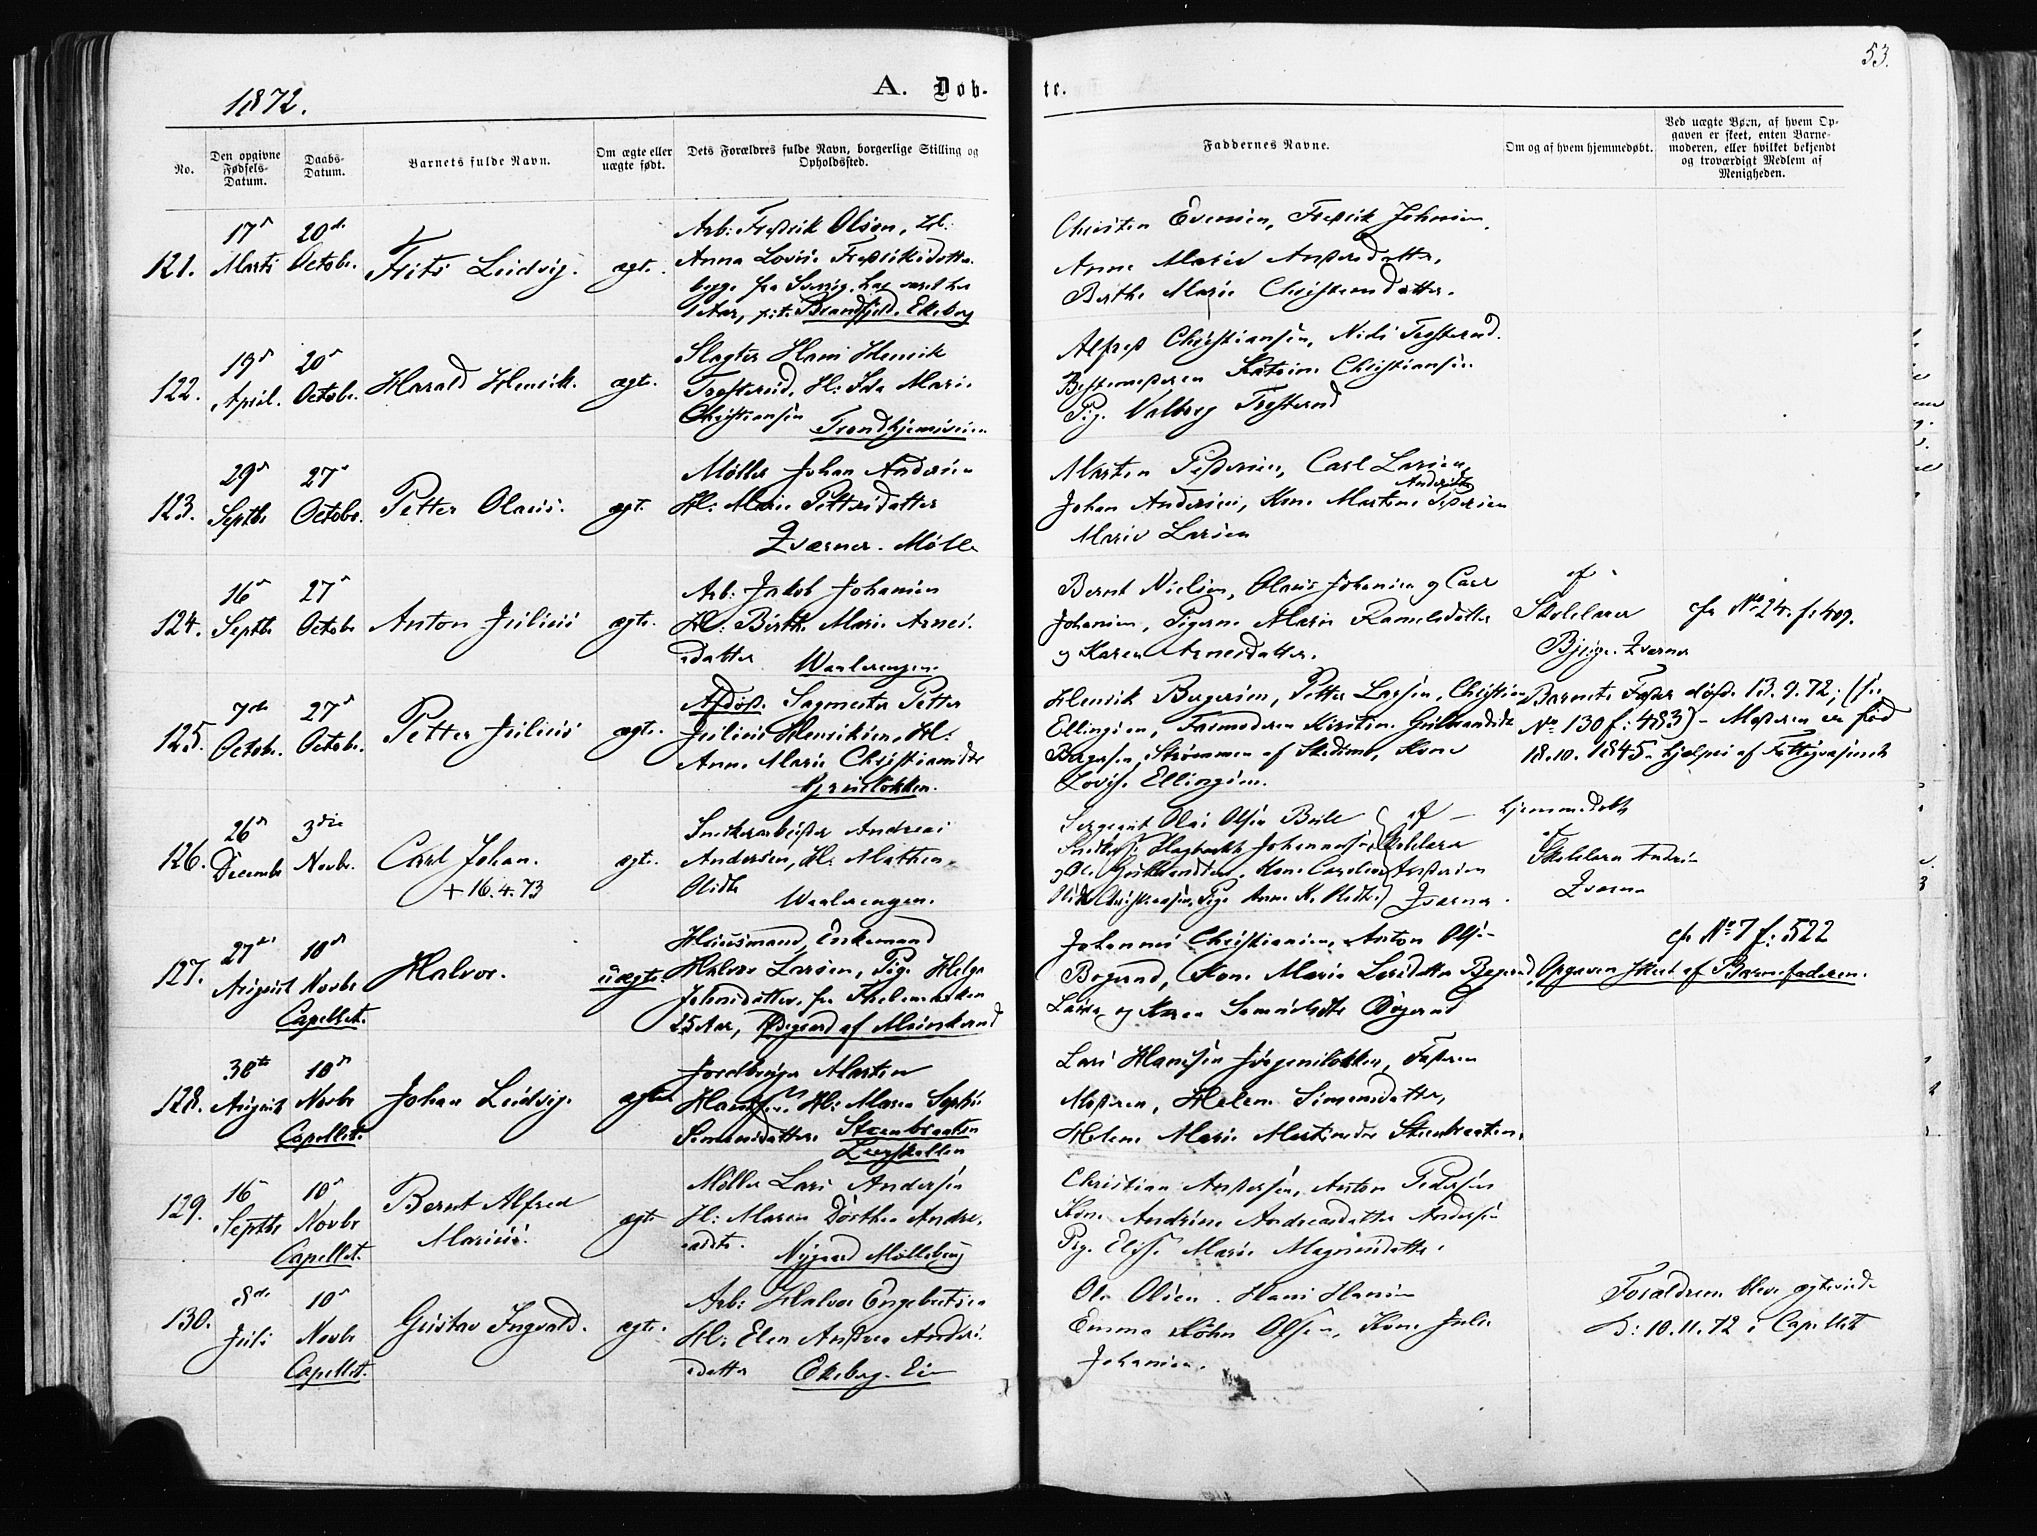 53.
1872.
A. Døb-
te.
No.
Den opgivne Fødsels-Datum.
Daabs-Datum.
Barnets fulde Navn.
Om ægte eller uægte født.
Dets Forældres fulde Navn, borgerlige Stilling og Opholdssted.
Faddernes Navne.
Om og af hvem hjemmedøbt.
Ved uægte Børn, af hvem Op-
gaven er skeet, enten Barne-
moderen, eller hvilket bekjendt
og troværdigt Medlem af
Menigheden.
121.
17d Marts
20de Octobr.
Frits Ludvig.
ægte.
Arb: Fredrik Olsen, H:
Anna Lovise Fredriksdatter
Ekeberg
Christen Evensen, Fredrik Johnsen,
Anne Marie Andersdatter,
Berthe Marie Christensdatter.
122.
19d April.
20d Octobr.
Harald Henrik.
ægte.
Slagter Hans Henrik
H: Ida Marie
Christiansen Trondhjemsveien
Alfred Christiansen, Nils
Bestemoderen Katrine Christiansen
Pig. Valborg
123.
29d Septbr
27d Octobr.
Petter Olaus.
ægt.
Møller Johan Andersen
H: Marie Pettersdatter
Kværner Mølle
Morten Pedersen, Carl Larsen,
Johan Andersen, Kone Martine Pedersen
Marie Larsen
124.
16d Septbr
27d Octobr
Anton Julius
ægte.
Arb: Jakob Johansen
H: Birthe Marie Arnes-
datter Waalerengen.
Bernt Nielsen, Olaus Johansen og Carl
Johansen, Pigerne Marie
og Karen Arnesdatter.
af
Skolelærer
Kværner
cfr No 24. f: 409.
125.
7de Octobr.
27d Octobr.
Petter Julius
ægte.
Afdød. Sagmester Petter
Julius Henriksen, H:
Anne Marie Christiansdtr
Henrik Borgersen, Petter Larsen, Christian
Ellingsen, Farmoderen Kirstine
Borgersen, Strømmen af Skedsmo, Kone
Lovise Ellingsen.
Barnets Fader døde 13.9.72; (se
No 130 f: 483) - Moderen er født
18.10.1845. hjelpes af Fattigvæsenet
126.
26d Decembr
3die Novbr.
Carl Johan.
+ 16.4.73
ægt.
Andreas
Andersen, H: Mathea
Olsdtr Waalerengen.
Sergeant Olai Olsen
Johannesen
Anne K. Olsdtr
af Skolelærer
Andersen
Kværner
hjemmedøbt
af
Skolelærer Anders
Kværner
127.
27de August
10d Novbr
Capellet.
Halvor.
uægte.
Huusmand, Enkemand
Halvor Larsen, Pige Helge
Johnsdatter fra Thelemarken
25 Aar,
Johannes Christiansen, Anton Olsen
Bøgerud, Kone Marie Larsdatter Bøgerud
Larsen og Karen Samuelsdtr Bøgerud
cfr No 7 f: 522
Opgaven skeet af Barnefaderen.
128.
30te August
10d Novbr
Capellet.
Johan Ludvig.
ægte
Jordbruger Morten
Hansen. H: Maren Sophie
Simensdatter Steenbraaten
Leerskallen
Lars Hansen Jørgensløkken, Faderen
Moderen, Helene Simensdatter,
Helene Marie Mortensdtr Steenbraaten.
129.
16 Septbr
10d Novbr
Capellet.
Bernt Alfred
Marius.
ægte
Møller Lars Andersen
H: Maren Dorthea Andre-
asdtr. Nygaard Mølleberg
Christian Andersen, Anton Pedersen
Kone Andrine Andreasdatter Andersen
Pig. Elise Marie Magnusdatter.
130.
8de Juli
10d Novbr
Capellet.
Gustav Ingvald.
ægte.
Arb: Halvor Engebretsen
H: Elen Andrea Anders-
datter Ekeberg. Eie
Ole Olsen. Hans Hansen
Emma Olsen, Kone Julie
Johansen.
Forældrene bleve ægteviede
D: 10.11.72 i Capellet